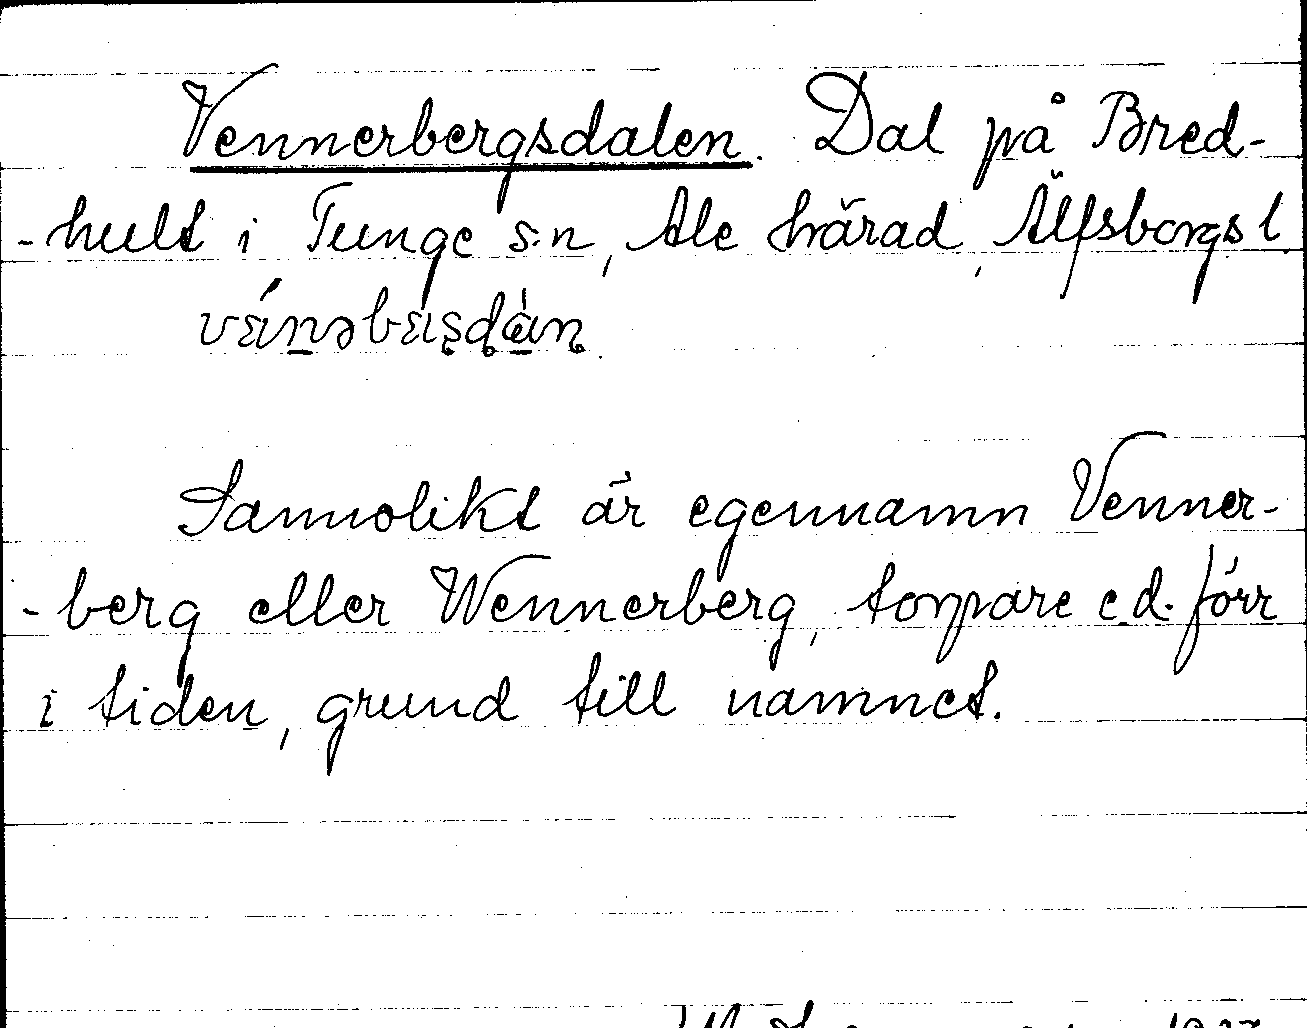 Vennerbergsdalen. Dal på Bred-
-hult i Tunge s:n, Ale härad, Älfsborgs l.
Sannolikt är egennamn Venner-
-berg eller Wennerberg, torpare e.d. förr
i tiden, grund till namnet.